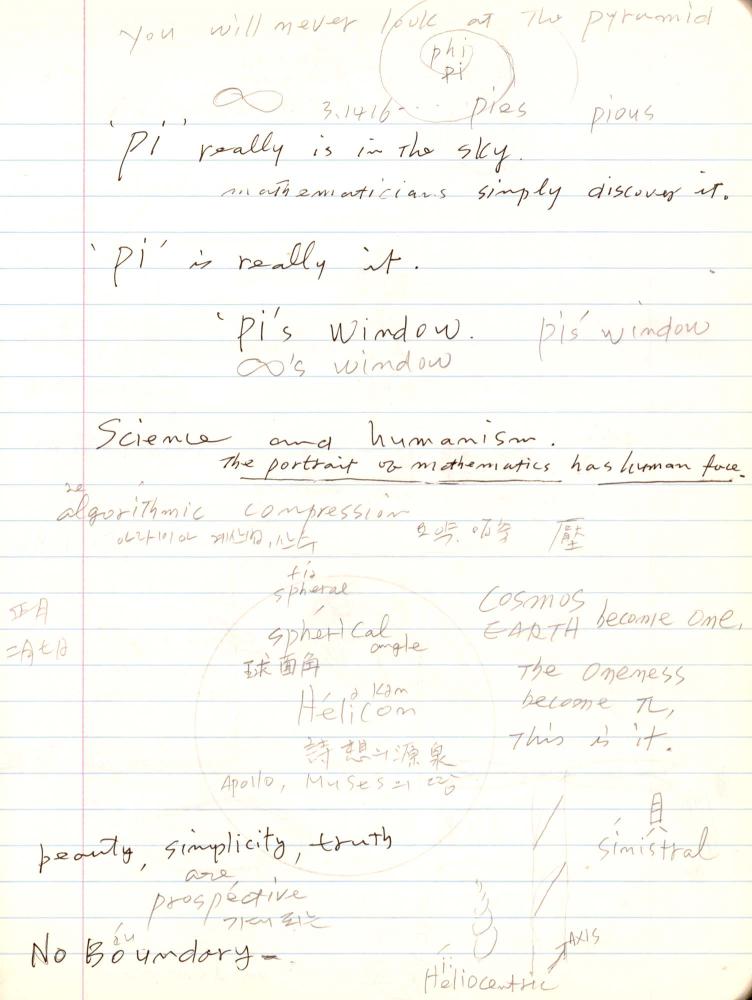 You will never look at the pyramid
phi
pi
∞ 3.1416---- pies pious
'pi' really is in the sky.
mathematicians simply discover it.
'pi' is really it.
'pi's window. pis' window
∞'s window
Science and humanism.
The portrait of mathematics has human face.
algorithmic compression
요약. 압축 壓
spheral
正月
二月七日
spherical angle
球面角
COSMOS
EARTH become one,
The Oneness
become π,
This is it.
Helicon
詩想의源泉
Apollo, Muses의
beauty, simplicity, truth
are
prospective
sinistral
No Boundary-
AXIS
Heliocentric